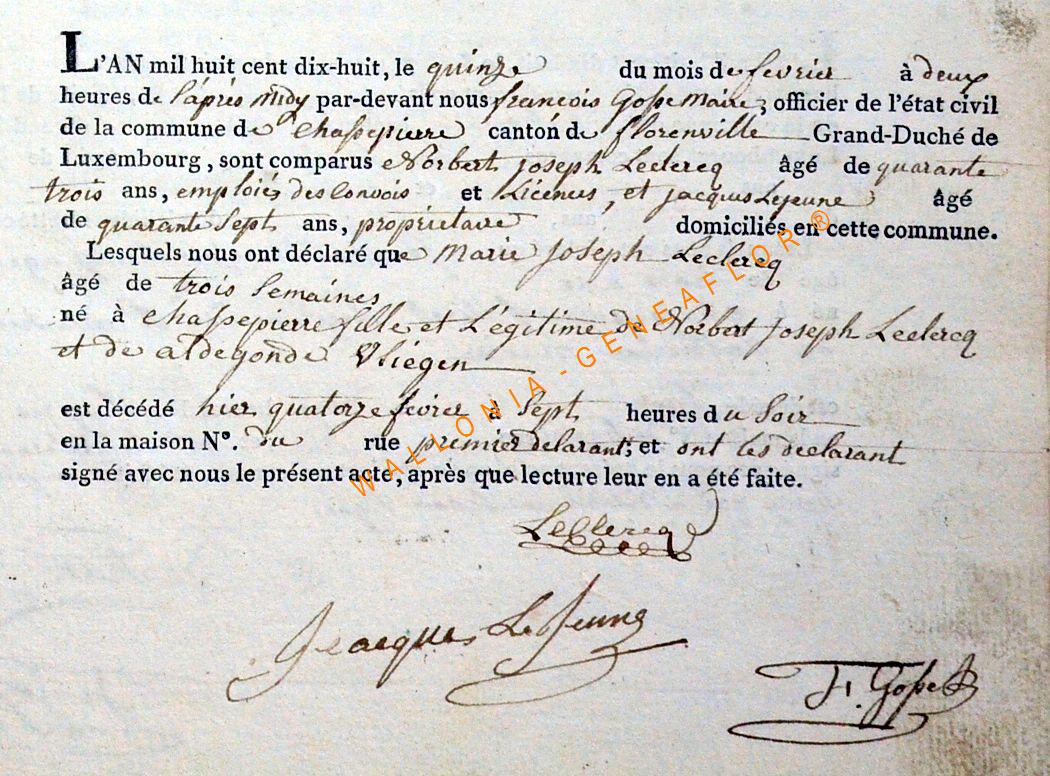 L'AN mil huit cent dix-huit, le quinze du mois de fevrier à deux
heures de l'après midy par-devant nous françois Gosse Maire, officier de l'état civil
de la commune de Chassepierre canton de florenville Grand-Duché de
Luxembourg, sont comparus Norbert joseph Leclercq âgé de quarante
trois ans, emploié des Convois et Licences, et jacques Lejeune âgé
de quarante Sept ans, propriétaire domiciliés en cette commune.
Lesquels nous ont déclaré que Marie joseph Leclercq
âgé de trois Semaines
né à Chassepierre fille et Légitime de Norbert joseph Leclercq
et de aldegonde Vliegen
est décédé hier quatorze fevrier à Sept heures du Soir
en la maison N°. du rue premier delarant; et ont les declarant
signé avec nous le présent acte, après que lecture leur en a été faite.
WALLONIA-GENEAFLOR®
Leclercq
Jacques LeJeune
F. Gosse